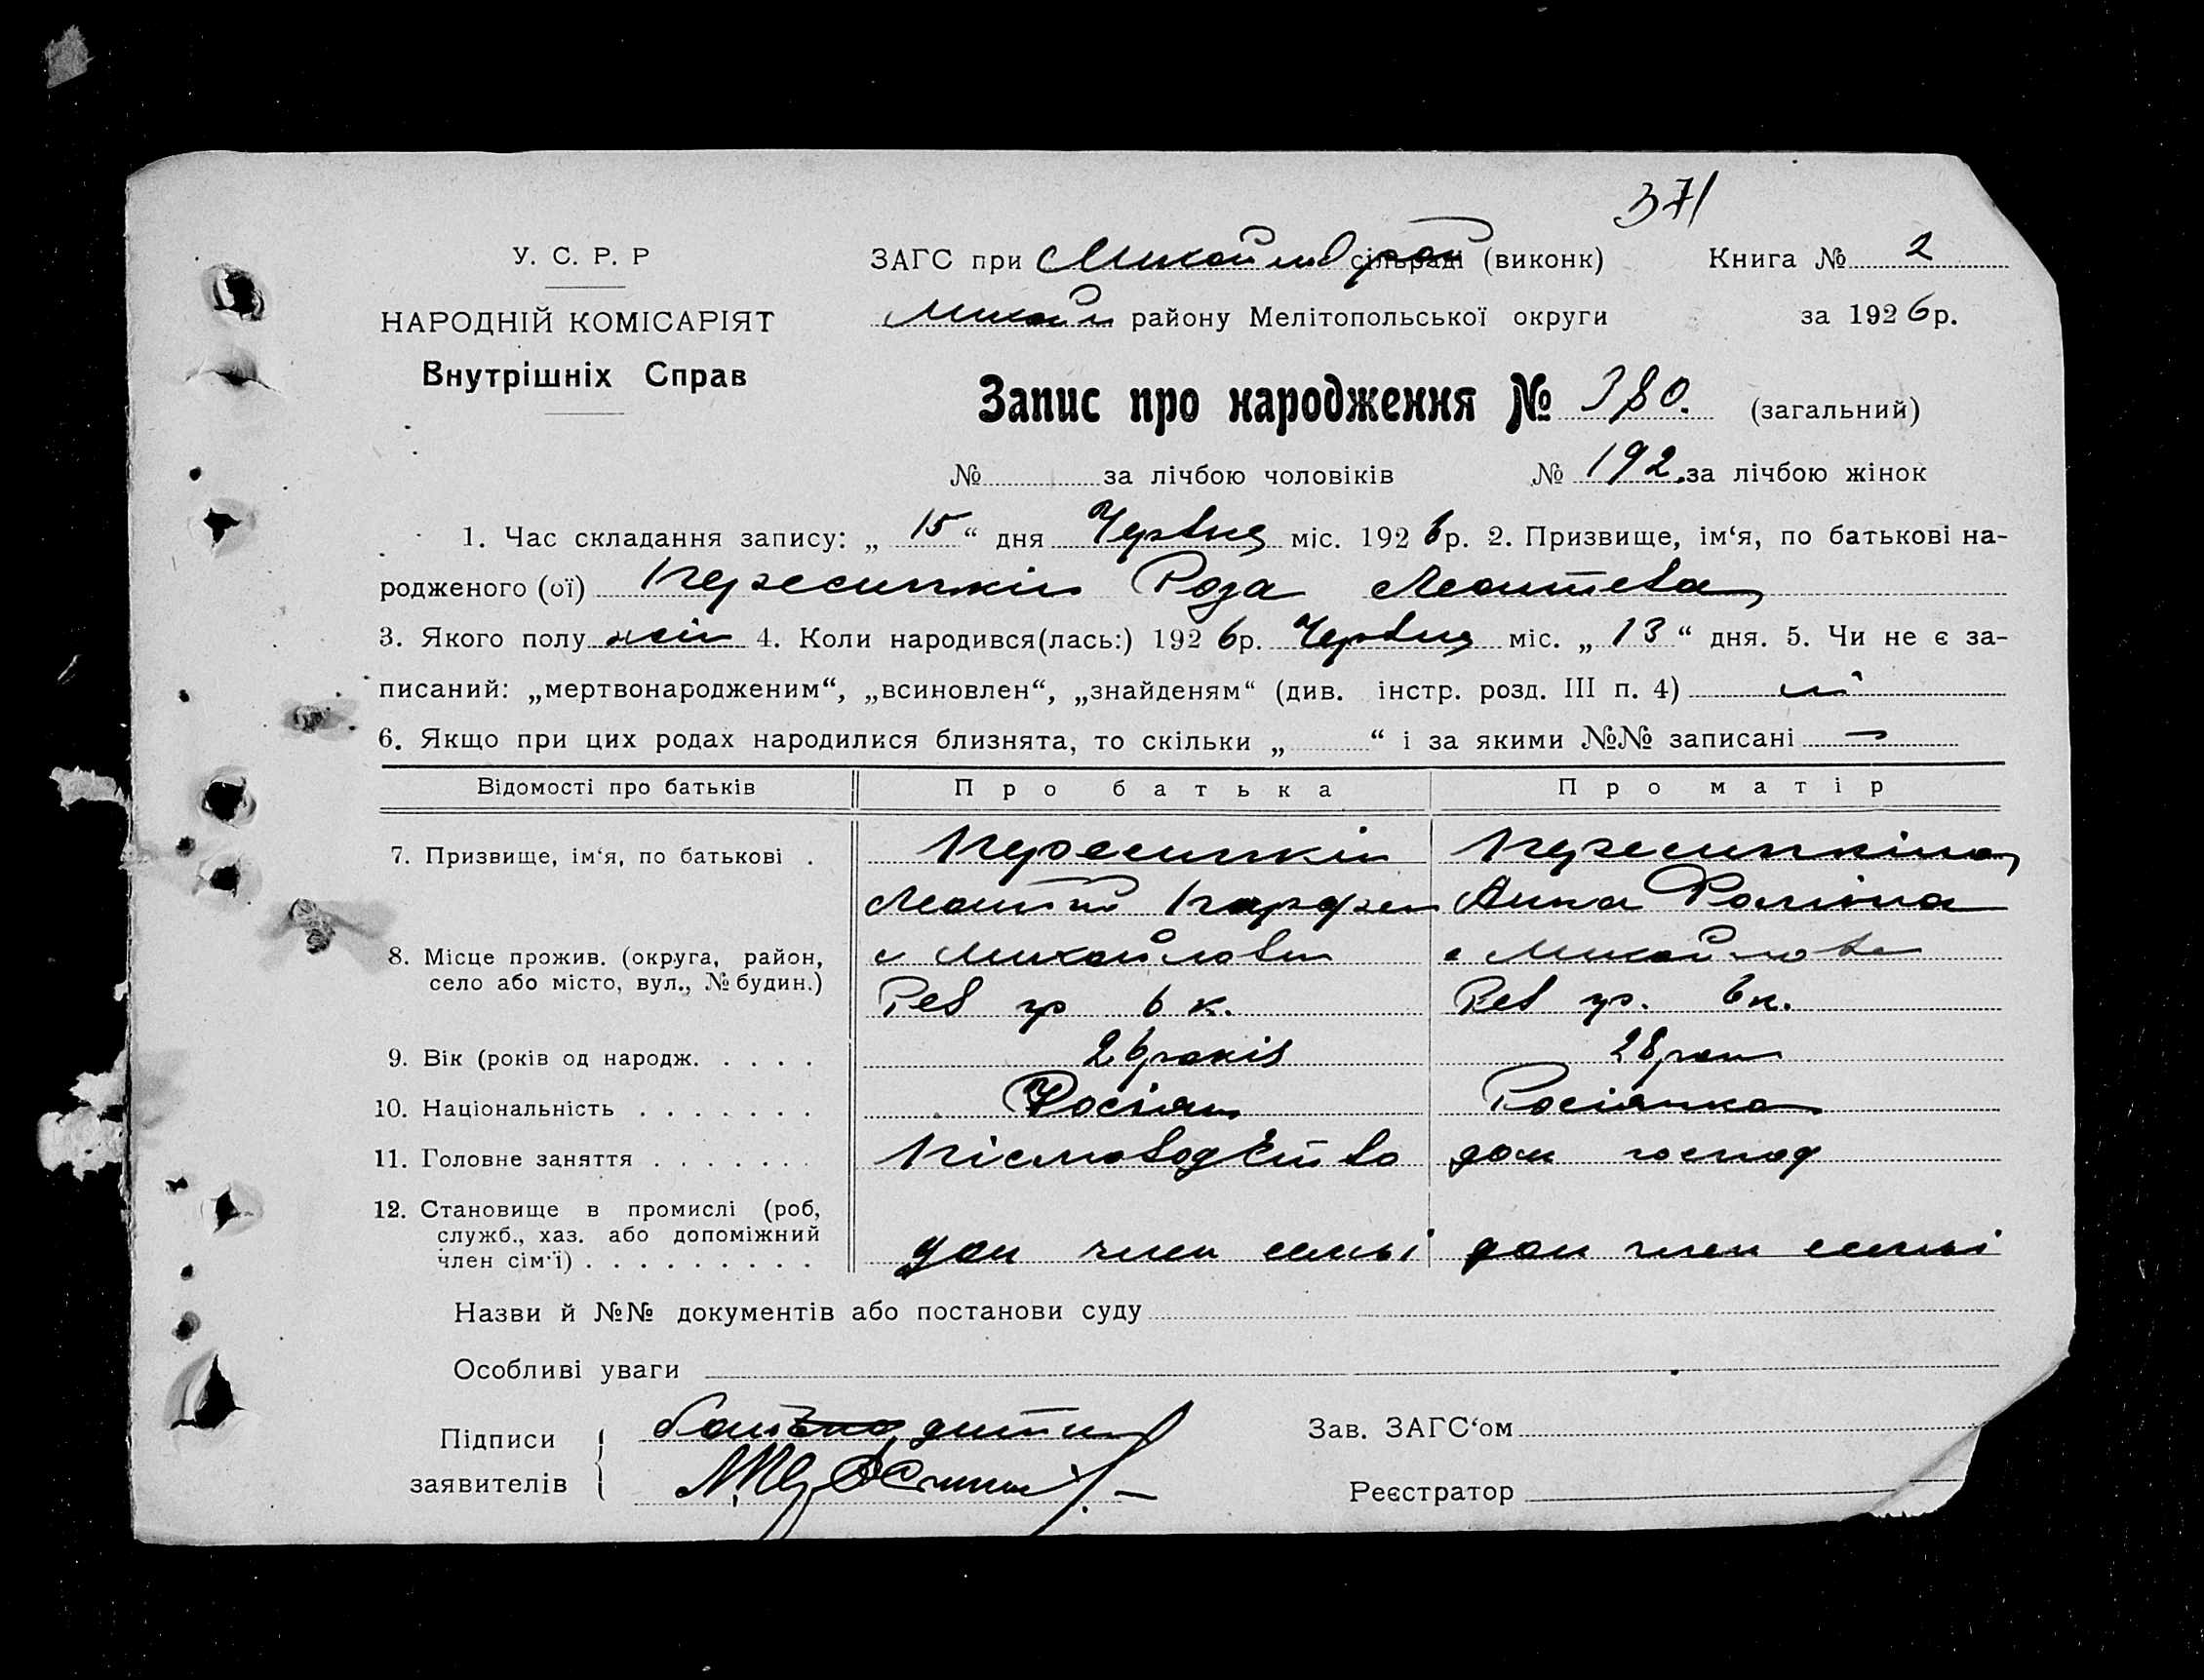 371
У. С. Р. Р
ЗАГС при Михайлов рай сільраді (виконк) Книга № 2
НАРОДНІЙ КОМІСАРІЯТ
Михайл району Мелітопольської округи за 1926р.
Внутрішніх Справ
Запис про народження № 380. (загальний)
№ за лічбою чоловіків № 192 за лічбою жінок
1. Час складання запису: „ 15 “ дня Червня міс. 1926р. 2. Призвище, ім‘я, по батькові на-
родженого (ої) Пересипкін Роза Леонтева
3. Якого полу жін 4. Коли народився(лась:) 1926р. Червня міс. „ 13 “ дня. 5. Чи не є за-
писаний: „мертвонародженим“, „всиновлен“, „знайденям“ (див. інстр. розд. III п. 4) ні
6. Якщо при цих родах народилися близнята, то скільки „ “ і за якими №№ записані —
Відомості про батьків Про батька Про матір
7. Призвище, ім‘я, по батькові . Пересипкін Пересипкіна
Леонтій Парфен Анна
8. Місце прожив. (округа, район, с Михайловка с Михайловка
село або місто, вул., № будин.) Рев гр 6 к. Рев гр. 6 к.
9. Вік (років од народж. . . . . 26 років 28 рок
10. Національність . . . . . . . Росіян Росіянка
11. Головне заняття . . . . . . . дом господ
12. Становище в промислі (роб,
служб., хаз. або допоміжний
член сім‘ї) . . . . . . . . . дом член семьі
Назви й №№ документів або постанови суду
Особливі уваги
Підписи батько дитини Зав. ЗАГС‘ом
заявителів Реєстратор